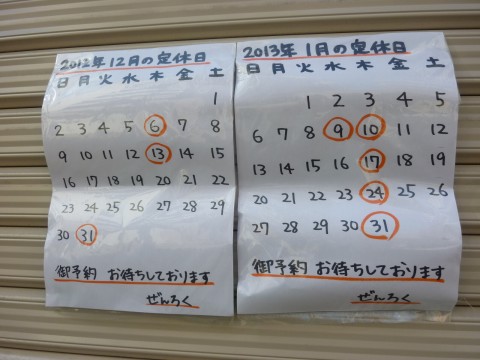 2012年12月の定休日
日 月 火 水 木 金 土
1
2 3 4 5 6 7 8
9 10 11 12 13 14 15
16 17 18 19 20 21 22
23 24 25 26 27 28 29
30 31
御予約 お待ちしております
ぜんろく
2013年 1月の定休日
日 月 火 水 木 金 土
1 2 3 4 5
6 7 8 9 10 11 12
13 14 15 16 17 18 19
20 21 22 23 24 25 26
27 28 29 30 31
御予約 お待ちしております
ぜんろく